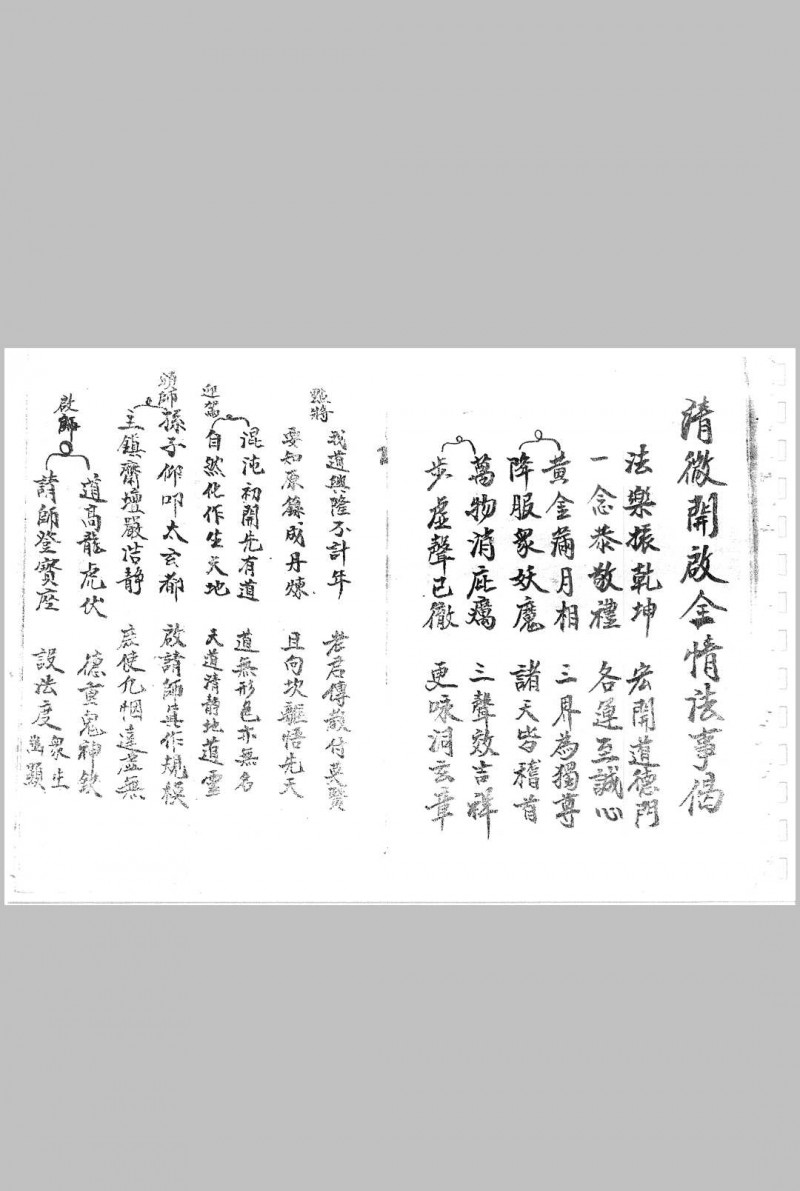 清微開啟全情法事偈
法樂振乾坤 宏開道德門
一念恭敬禮 各運至誠心
黃金滿月相 三界為獨尊
降服衆妖魔 諸天皆稽首
萬物消疵癘 三聲效吉祥
步虛聲已徹 更咏洞玄章
我道興隆不計年 老君傳教付英賢
要知原籙成丹煉 且向坎驅悟先天
混沌初開先有道 道無形色亦無名
迎駕
自然化作生天地 天道清静地道靈
頌師
孫子仰叩太玄都 啟請師真作規模
主鎮齋壇嚴浩静 鹿使凡烟達虛無
啟師
道高龍虎伏 德重鬼神欽
請師登寳座 設法度衆生